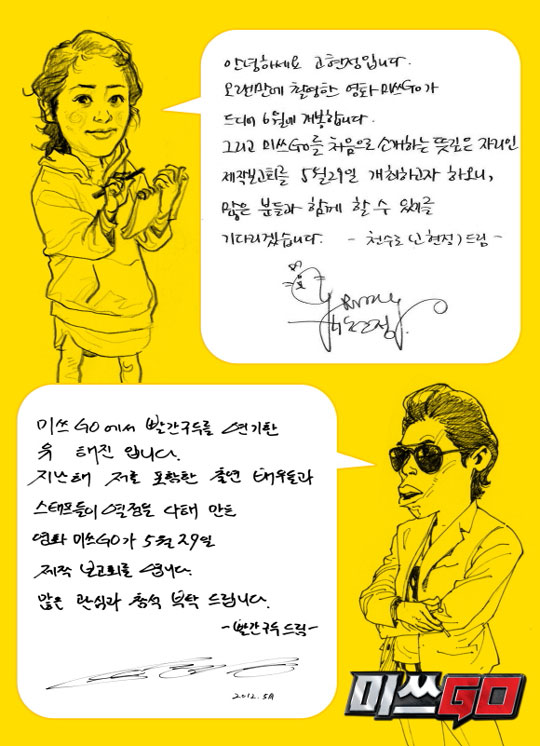 안녕하세요 고현정입니다.
오랜만에 촬영한 영화 미쓰GO가
드디어 6월에 개봉합니다.
그리고 미쓰GO를 처음으로 소개하는 뜻깊은 자리인
제작보고회를 5월29일 개최하고자 하오니,
많은 분들과 함께 할 수 있기를
기다리겠습니다. - 천수로(고현정)드림 -
고현정
미쓰 GO에서 빨간구두를 연기한
유 해진 입니다.
지난해 저를 포함한 출연 배우들과
스태프들이 열정을 다해 만든
영화 미쓰GO가 5월 29일
제작 보고회를 엽니다.
많은 관심과 참석 부탁 드립니다.
-빨간구두드림-
2012. 5月
미쓰GO